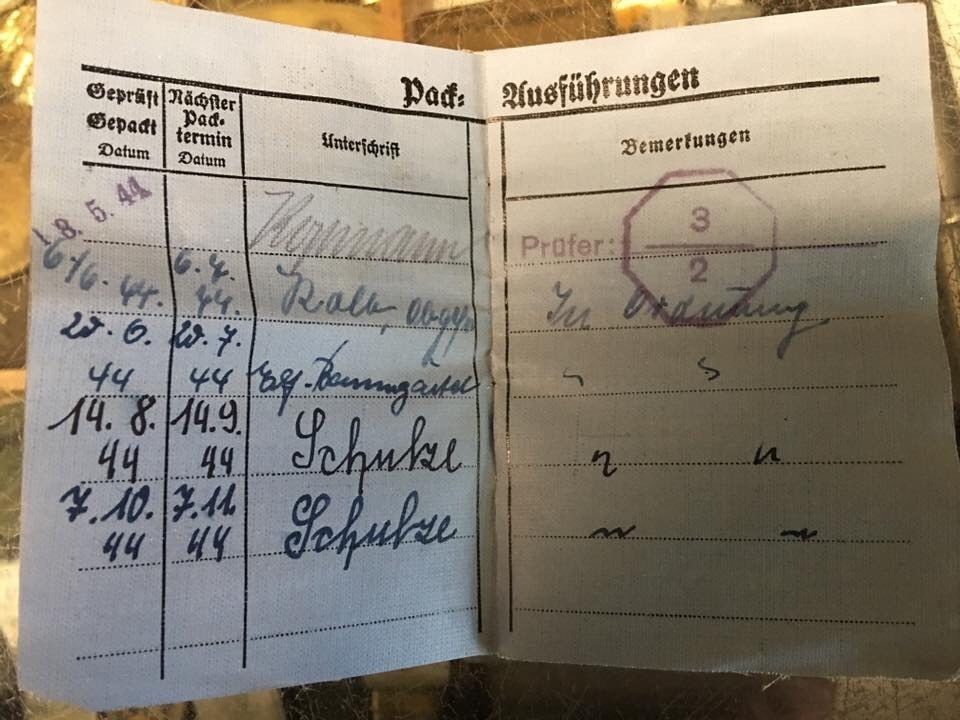 Pack- Ausführungen
Geprüft Gepackt Datum
Nächster Pack- termin Datum
Unterschrift
Bemerkungen
18. 5. 44
Prüfer: 3
2
6. 6. 44. 6. 7. 44. In Ordnung
6. 44 7. 44
14. 8. 44 14.9. 44 Schulze " "
7.10. 44 7.11. 44 Schulze " "